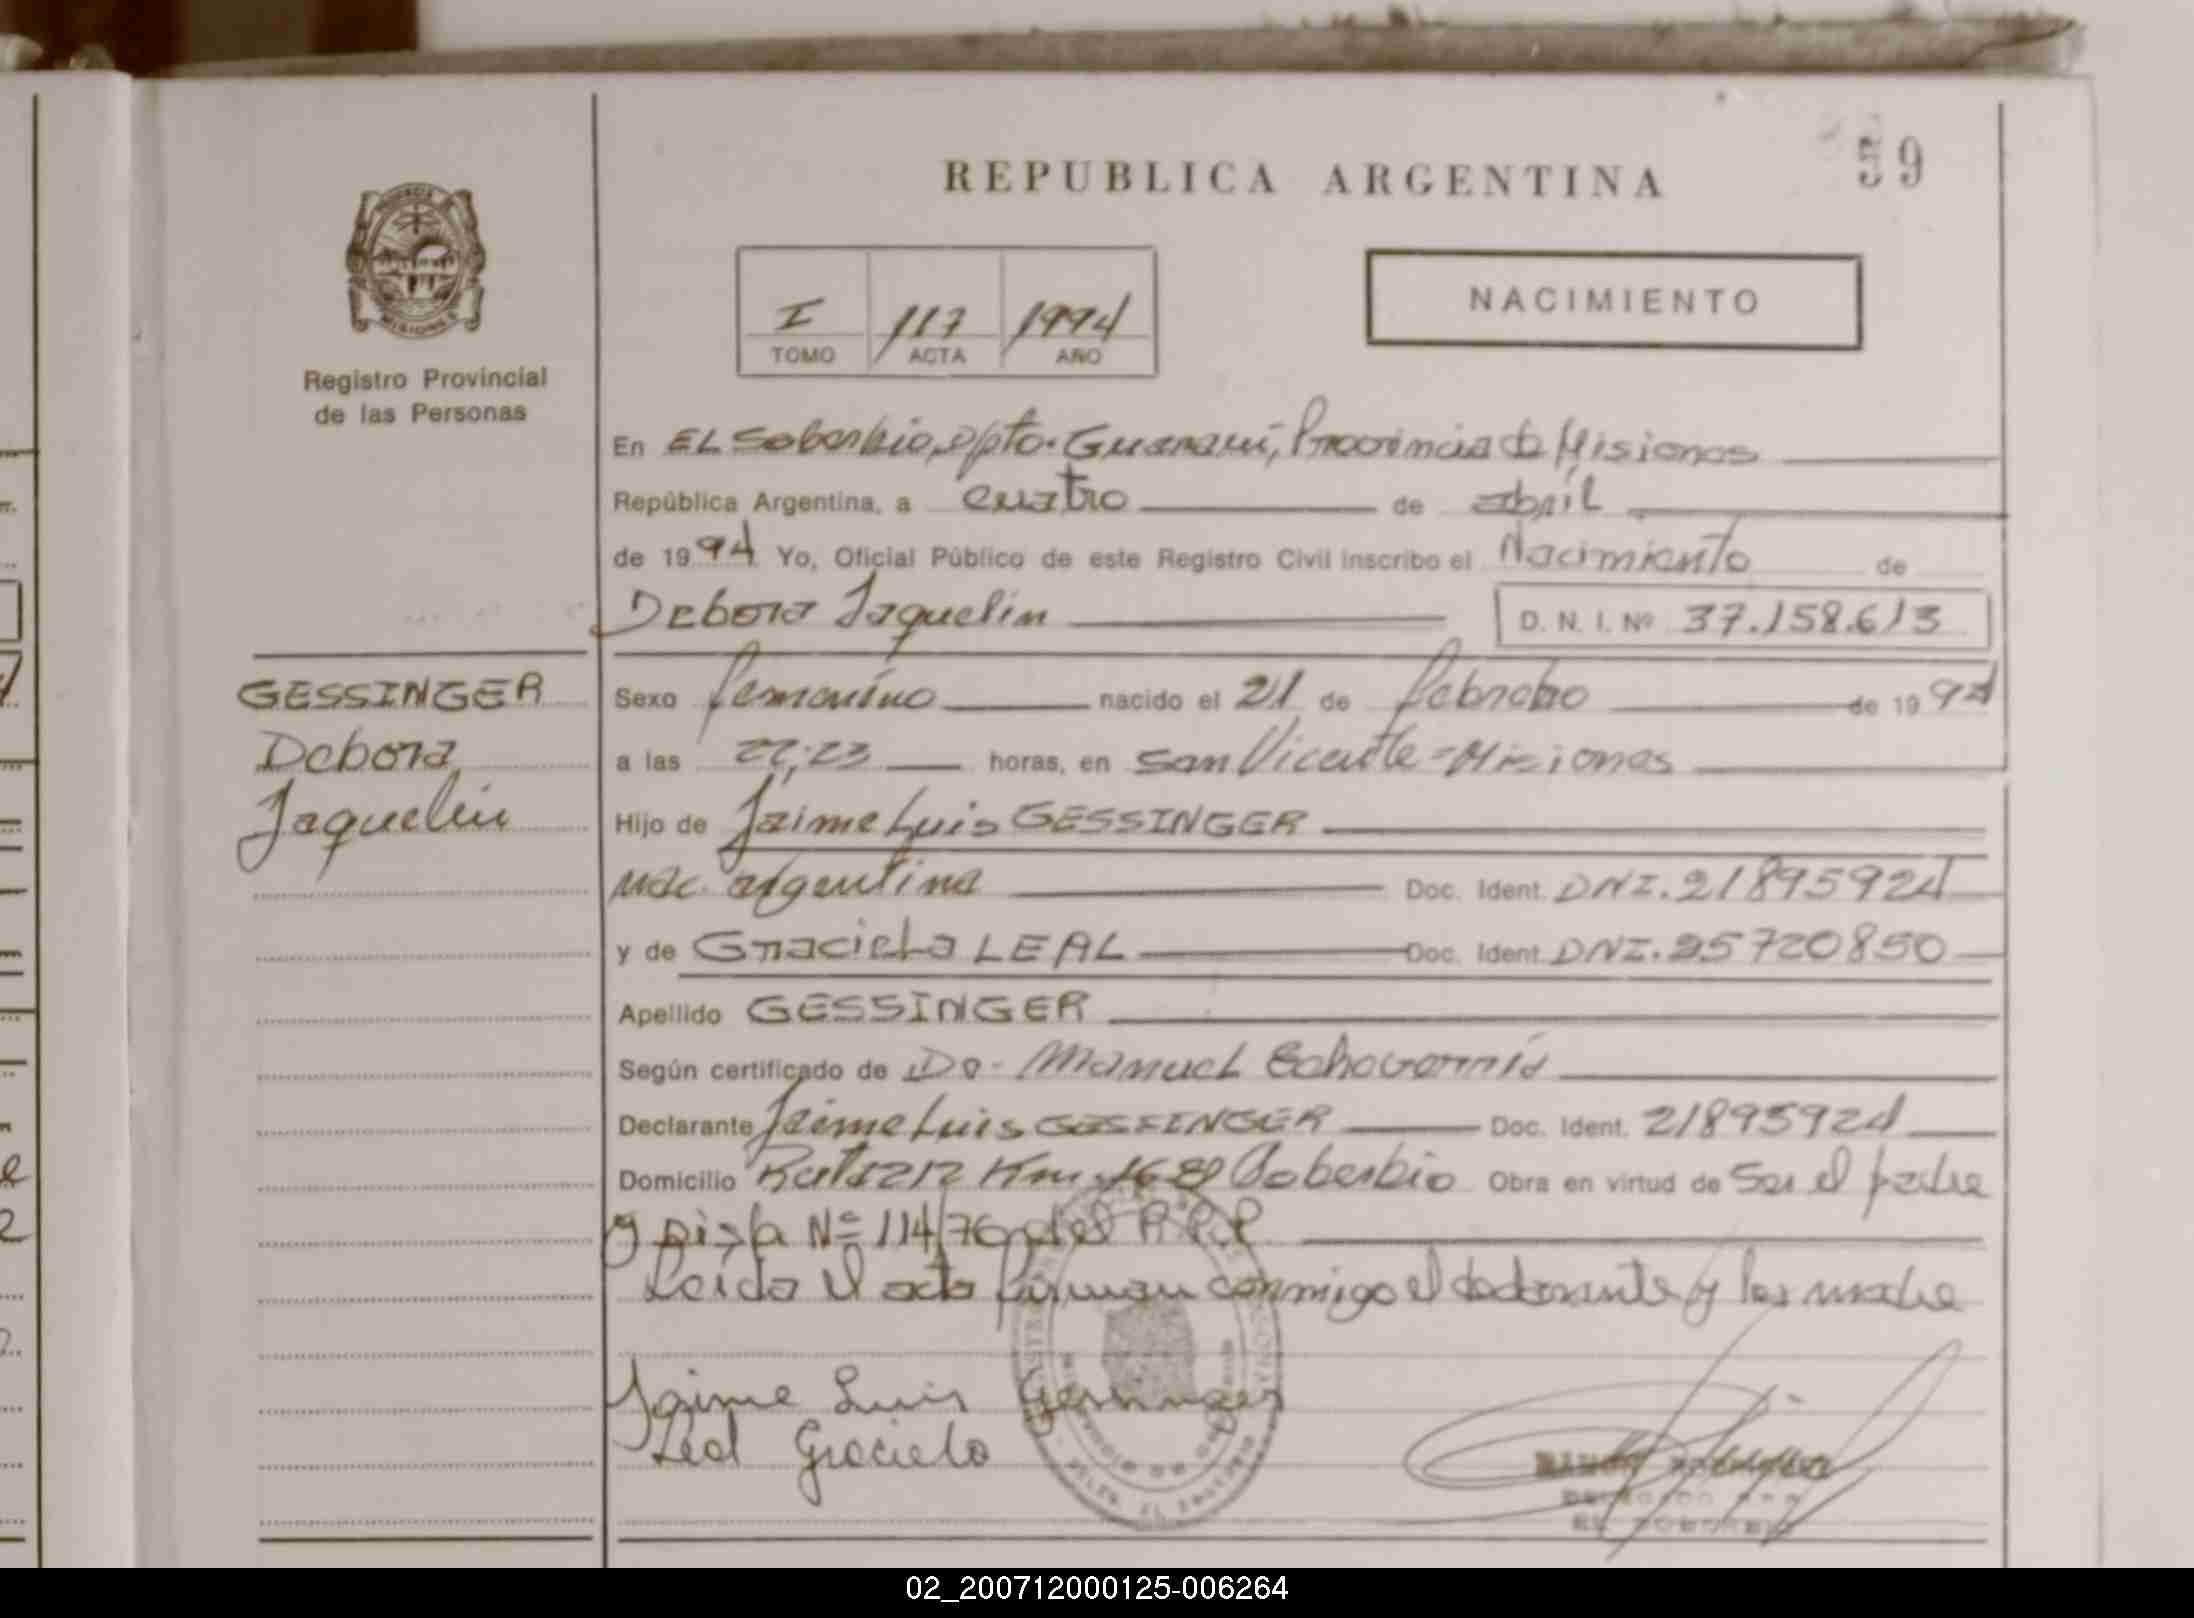 REPUBLICA ARGENTINA
59
I 117 1994
TOMO ACTA AÑO
NACIMIENTO
MISIONES
Registro Provincial
de las Personas
En EL Soberbio, Dpto. Guaraní, Provincia de Misiones
República Argentina, a cuatro de abril
de 1994 Yo, Oficial Público de este Registro Civil inscribo el Nacimiento de
Debora Jaquelin D. N. I. Nº 37.158.613
GESSINGER
Debora
Jaquelin
Sexo femenino nacido el 21 de febrero de 1994
a las 22,23 horas, en San Vicente - Misiones
Hijo de Jaime Luis GESSINGER
nac. argentina Doc. Ident. DNI. 21895924
y de Graciela LEAL Doc. Ident. DNI. 25720850
Apellido GESSINGER
Según certificado de Do- Manuel Echeverría
Declarante Jaime Luis GESSINGER Doc. Ident. 21895924
Domicilio Ruta 212 Km Soberbio Obra en virtud de ser el padre
y Nº 114/76 del R.P.P
Leida el acta firman conmigo el declarante y la madre
Jaime Luis Gessinger
Leal Graciela
EL SOBERBIO
02_200712000125-006264